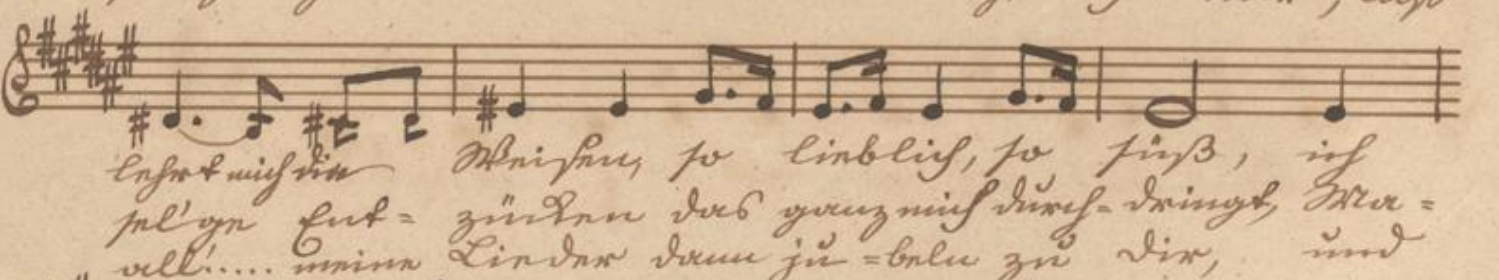 lehrt mich die Weisen, so lieblich, so süß, ich
sel'ge Ent= zücken das ganz mich durch=dringt, Ma=
all'..... meine Lieder dann ju=beln zu dir, und